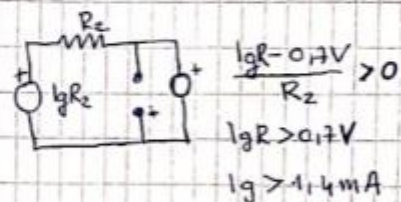 R₂
+
+
IgR₂
+
IgR-0,7V / R₂ > 0
IgR > 0,7V
Ig > 1,4mA